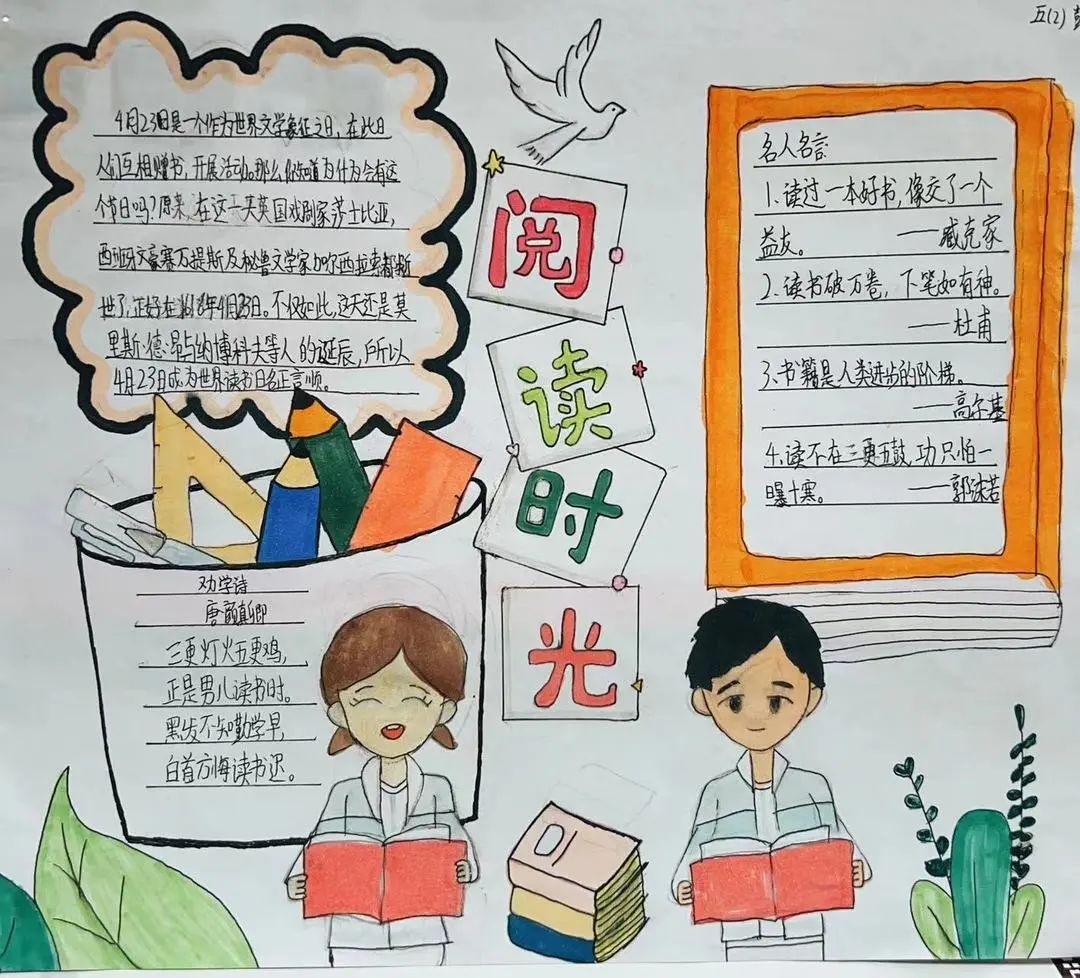 五(2)
4月23日是一个作为世界文学象征之日，在此日
人们互相赠书，开展活动。那么你知道为什么会有这
个节日吗？原来，在这一天英国戏剧家莎士比亚，
西班牙文豪塞万提斯及秘鲁文学家加尔西拉索都逝
世了，正好在1616年4月23日。不仅如此，这天还是莫
里斯·德·昂与纳博科夫等人的诞辰，所以
4月23日成为世界读书日名正言顺。
阅
读
时
光
名人名言：
1.读过一本好书，像交了一个
益友。 ——臧克家
2.读书破万卷，下笔如有神。
——杜甫
3.书籍是人类进步的阶梯。
——高尔基
4.读不在三更五鼓，功只怕一
曝十寒。 ——郭沫若
劝学诗
唐颜真卿
三更灯火五更鸡，
正是男儿读书时。
黑发不知勤学早，
白首方悔读书迟。